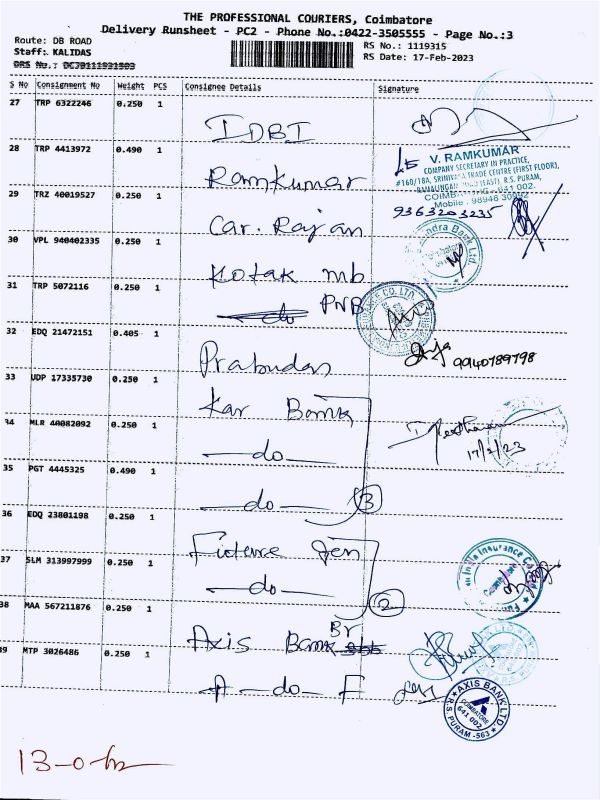 THE PROFESSIONAL COURIERS, Coimbatore
Delivery Runsheet - PC2 - Phone No.:0422-3505555 - Page No.:3
Route: DB ROAD
RS No.: 1119315
Staff: KALIDAS
RS Date: 17-Feb-2023
S No Consignment No Weight PCS Consignee Details Signature
27 TRP 6322246 0.250 1
IDBI
28 TRP 4413972 0.490 1
V. RAMKUMAR
COMPANY SECRETARY IN PRACTICE,
#160/18A, SRINIVASA TRADE CENTRE (FIRST FLOOR),
(EAST), R.S. PURAM,
641 002.
Mobile
Ramkumar
9363203235
29 TRZ 40019527 0.250 1
Car. Rajan
30 VPL 940402335 0.250 1
Kotak mb
31 TRP 5072116 0.250 1
do PNB
32 EDQ 21472151 0.405 1
9940789798
Prabudas
33 UDP 17335730 0.250 1
Kar Bank
34 MLR 40082092 0.250 1
do
17/2/23
35 PGT 4445325 0.490 1
do 3
36 EDQ 23801198 0.250 1
Gen
37 SLM 313997999 0.250 1
do 2
38 MAA 567211876 0.250 1
Axis Bank Br
39 MTP 3026486 0.250 1
A do F
AXIS BANK LTD.
COIMBATORE
641 002
R S PURAM -563